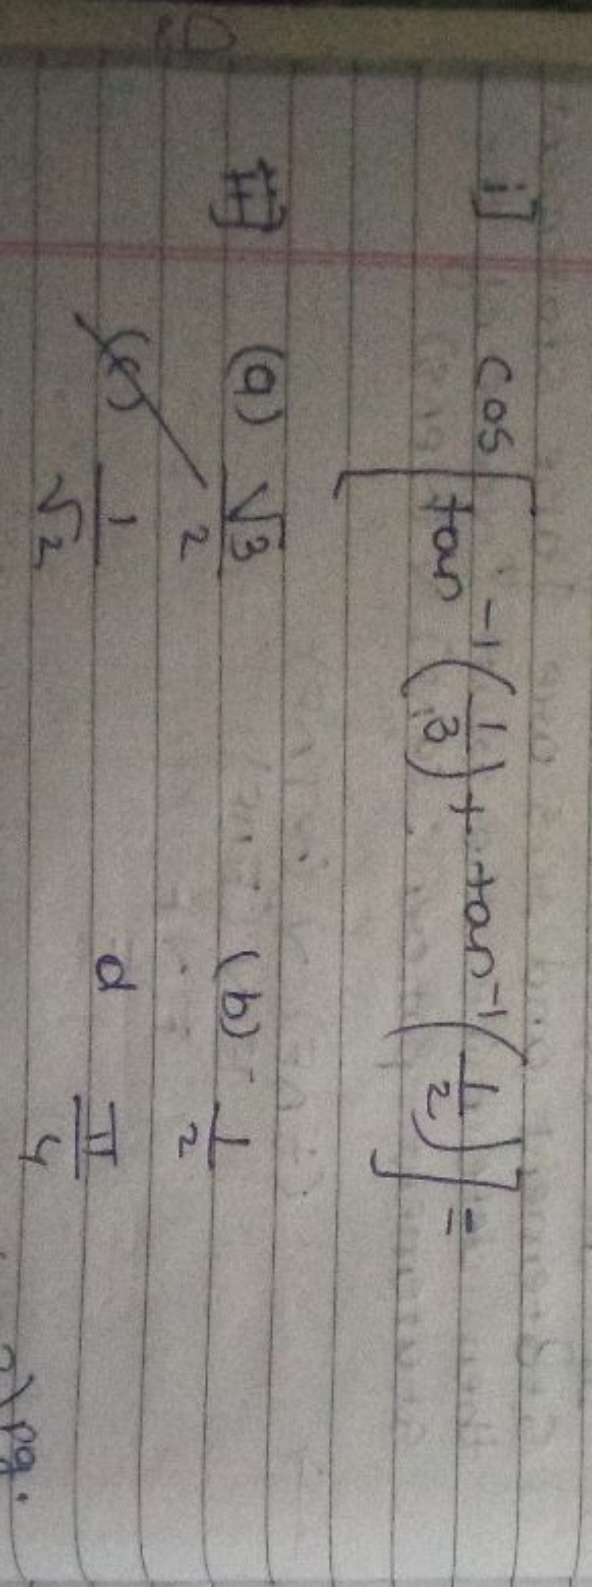 i] cos [tan⁻¹(1/3) + tan⁻¹(1/2)] =
(a) √3/2 (b) 1/2
(c) 1/√2 d π/4
pg.